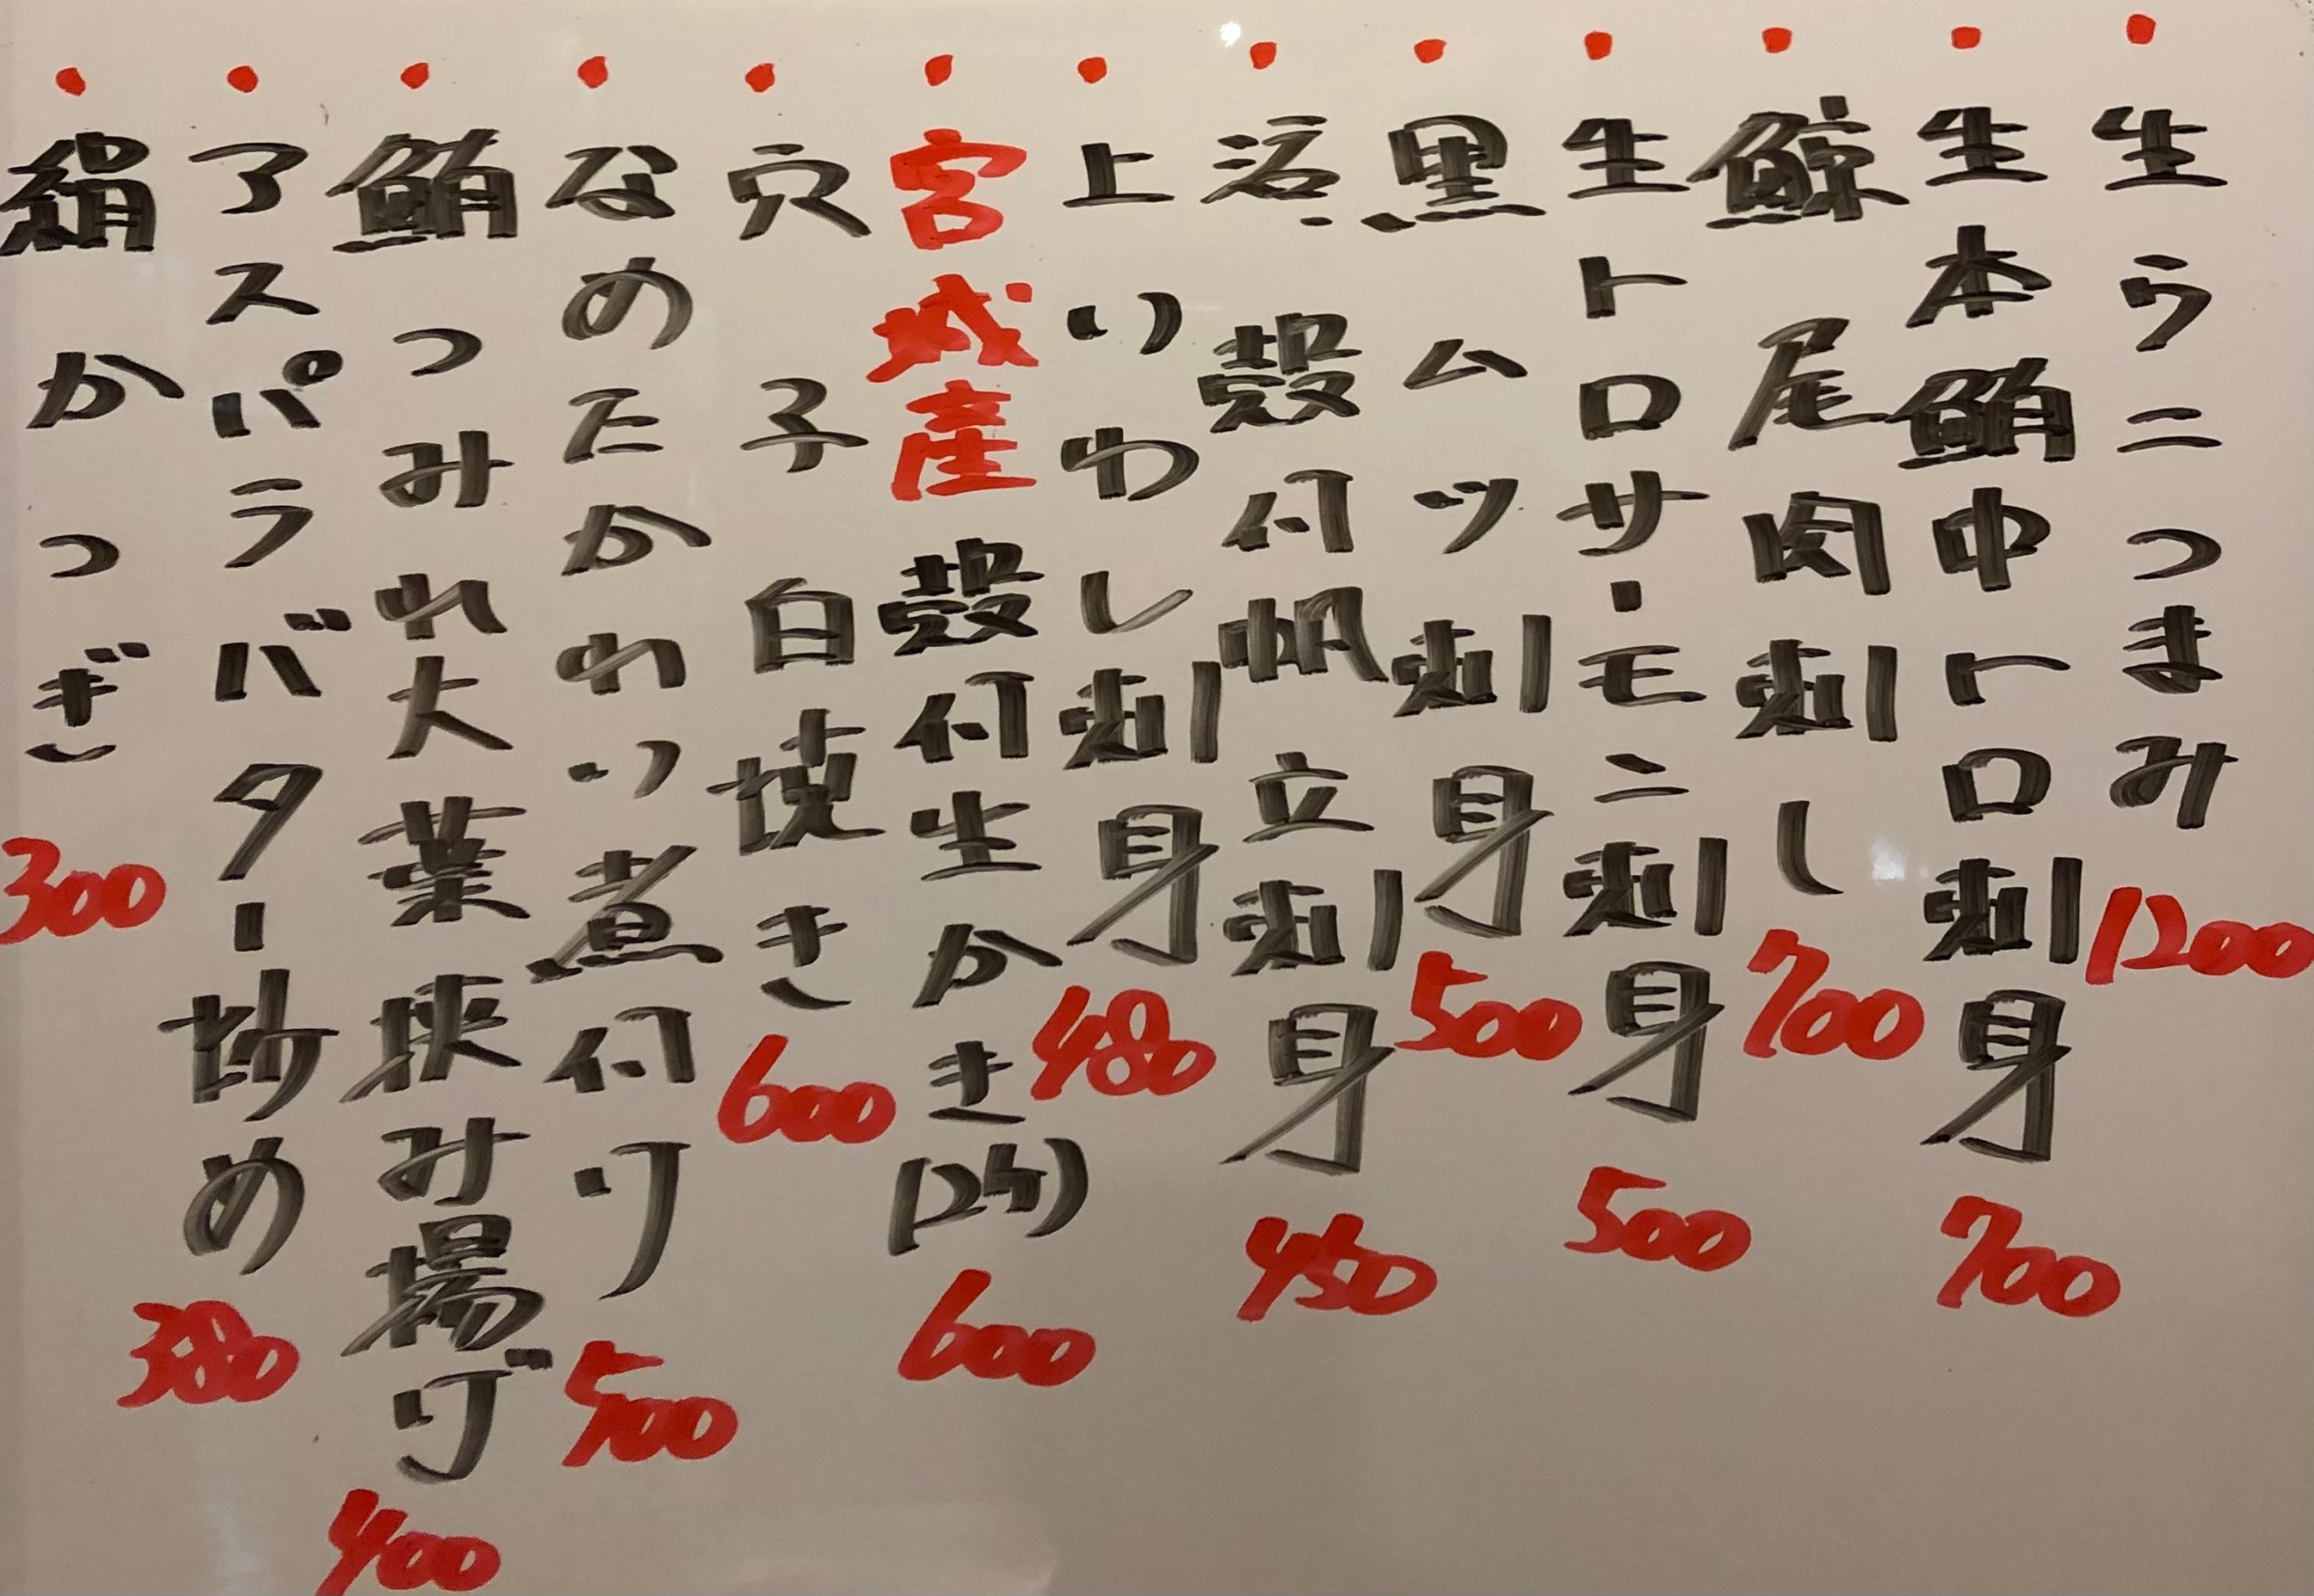 ・生ウニつまみ 1200
・生本鮪中トロ刺身 700
・鯨尾肉刺し 700
・生トロサーモン刺身 500
・黒ムツ刺身 500
・活殻付帆立刺身 450
・上いわし刺身 480
・宮城産殻付生かき(2ヶ) 600
・穴子白焼き 600
・なめたかれい煮付け 500
・鮪つみれ大葉挟み揚げ 400
・アスパラバター炒め 380
・絹かつぎ 300